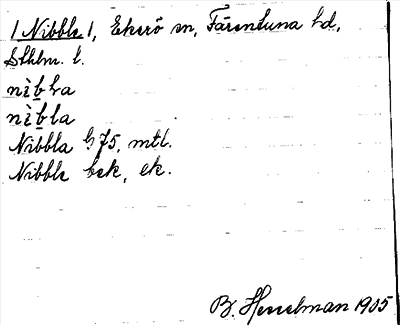 1 Nibble 1, Ekerö sn, Färentuna hd,
Sthlm. l.
nìbḷa
nìbla
Nibbla hj 75, mtl.
Nibble bek, ek.
B. Hesselman 1905